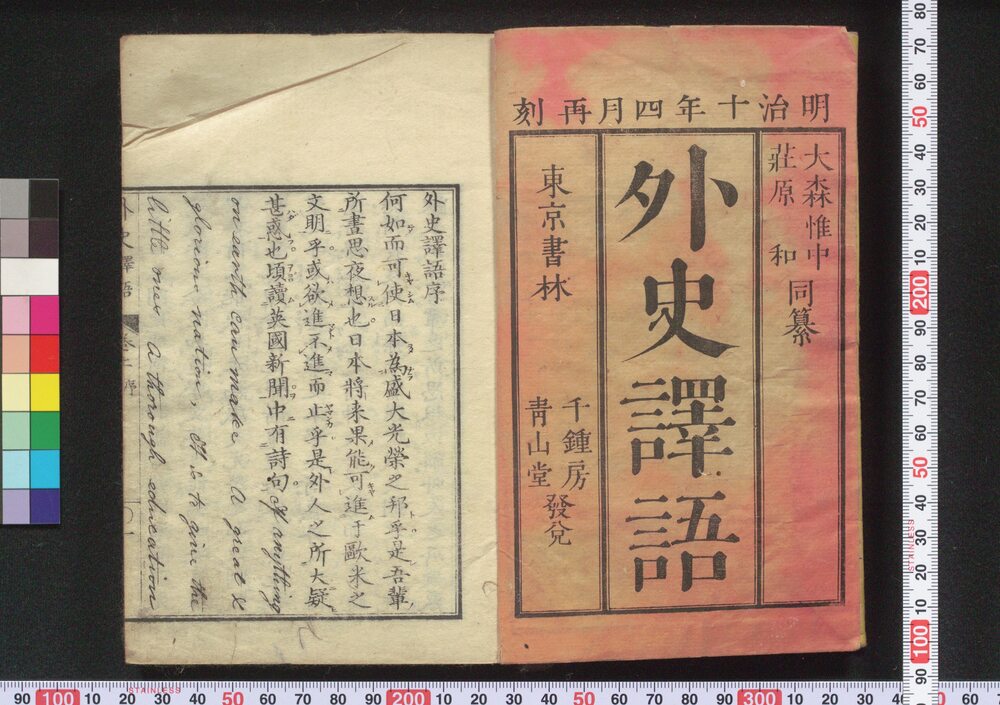 明治十年四月再刻
大森惟中
莊原和
同纂
外史譯語
東京書林
千鍾房
靑山堂
發兌
外史譯語序
何如而可使日本為盛大光榮之邦乎是吾輩
所晝思夜想也日本將来果能可進于歐米之
文明乎或欲進不進而止乎是外人之所大疑
甚惑也頃讀英國新聞中有詩句 If anything
on earth can make A great &
glorious nation, It is to give the
little ones A thorough education
外史譯語
序
STAINLESS
STAINLESS